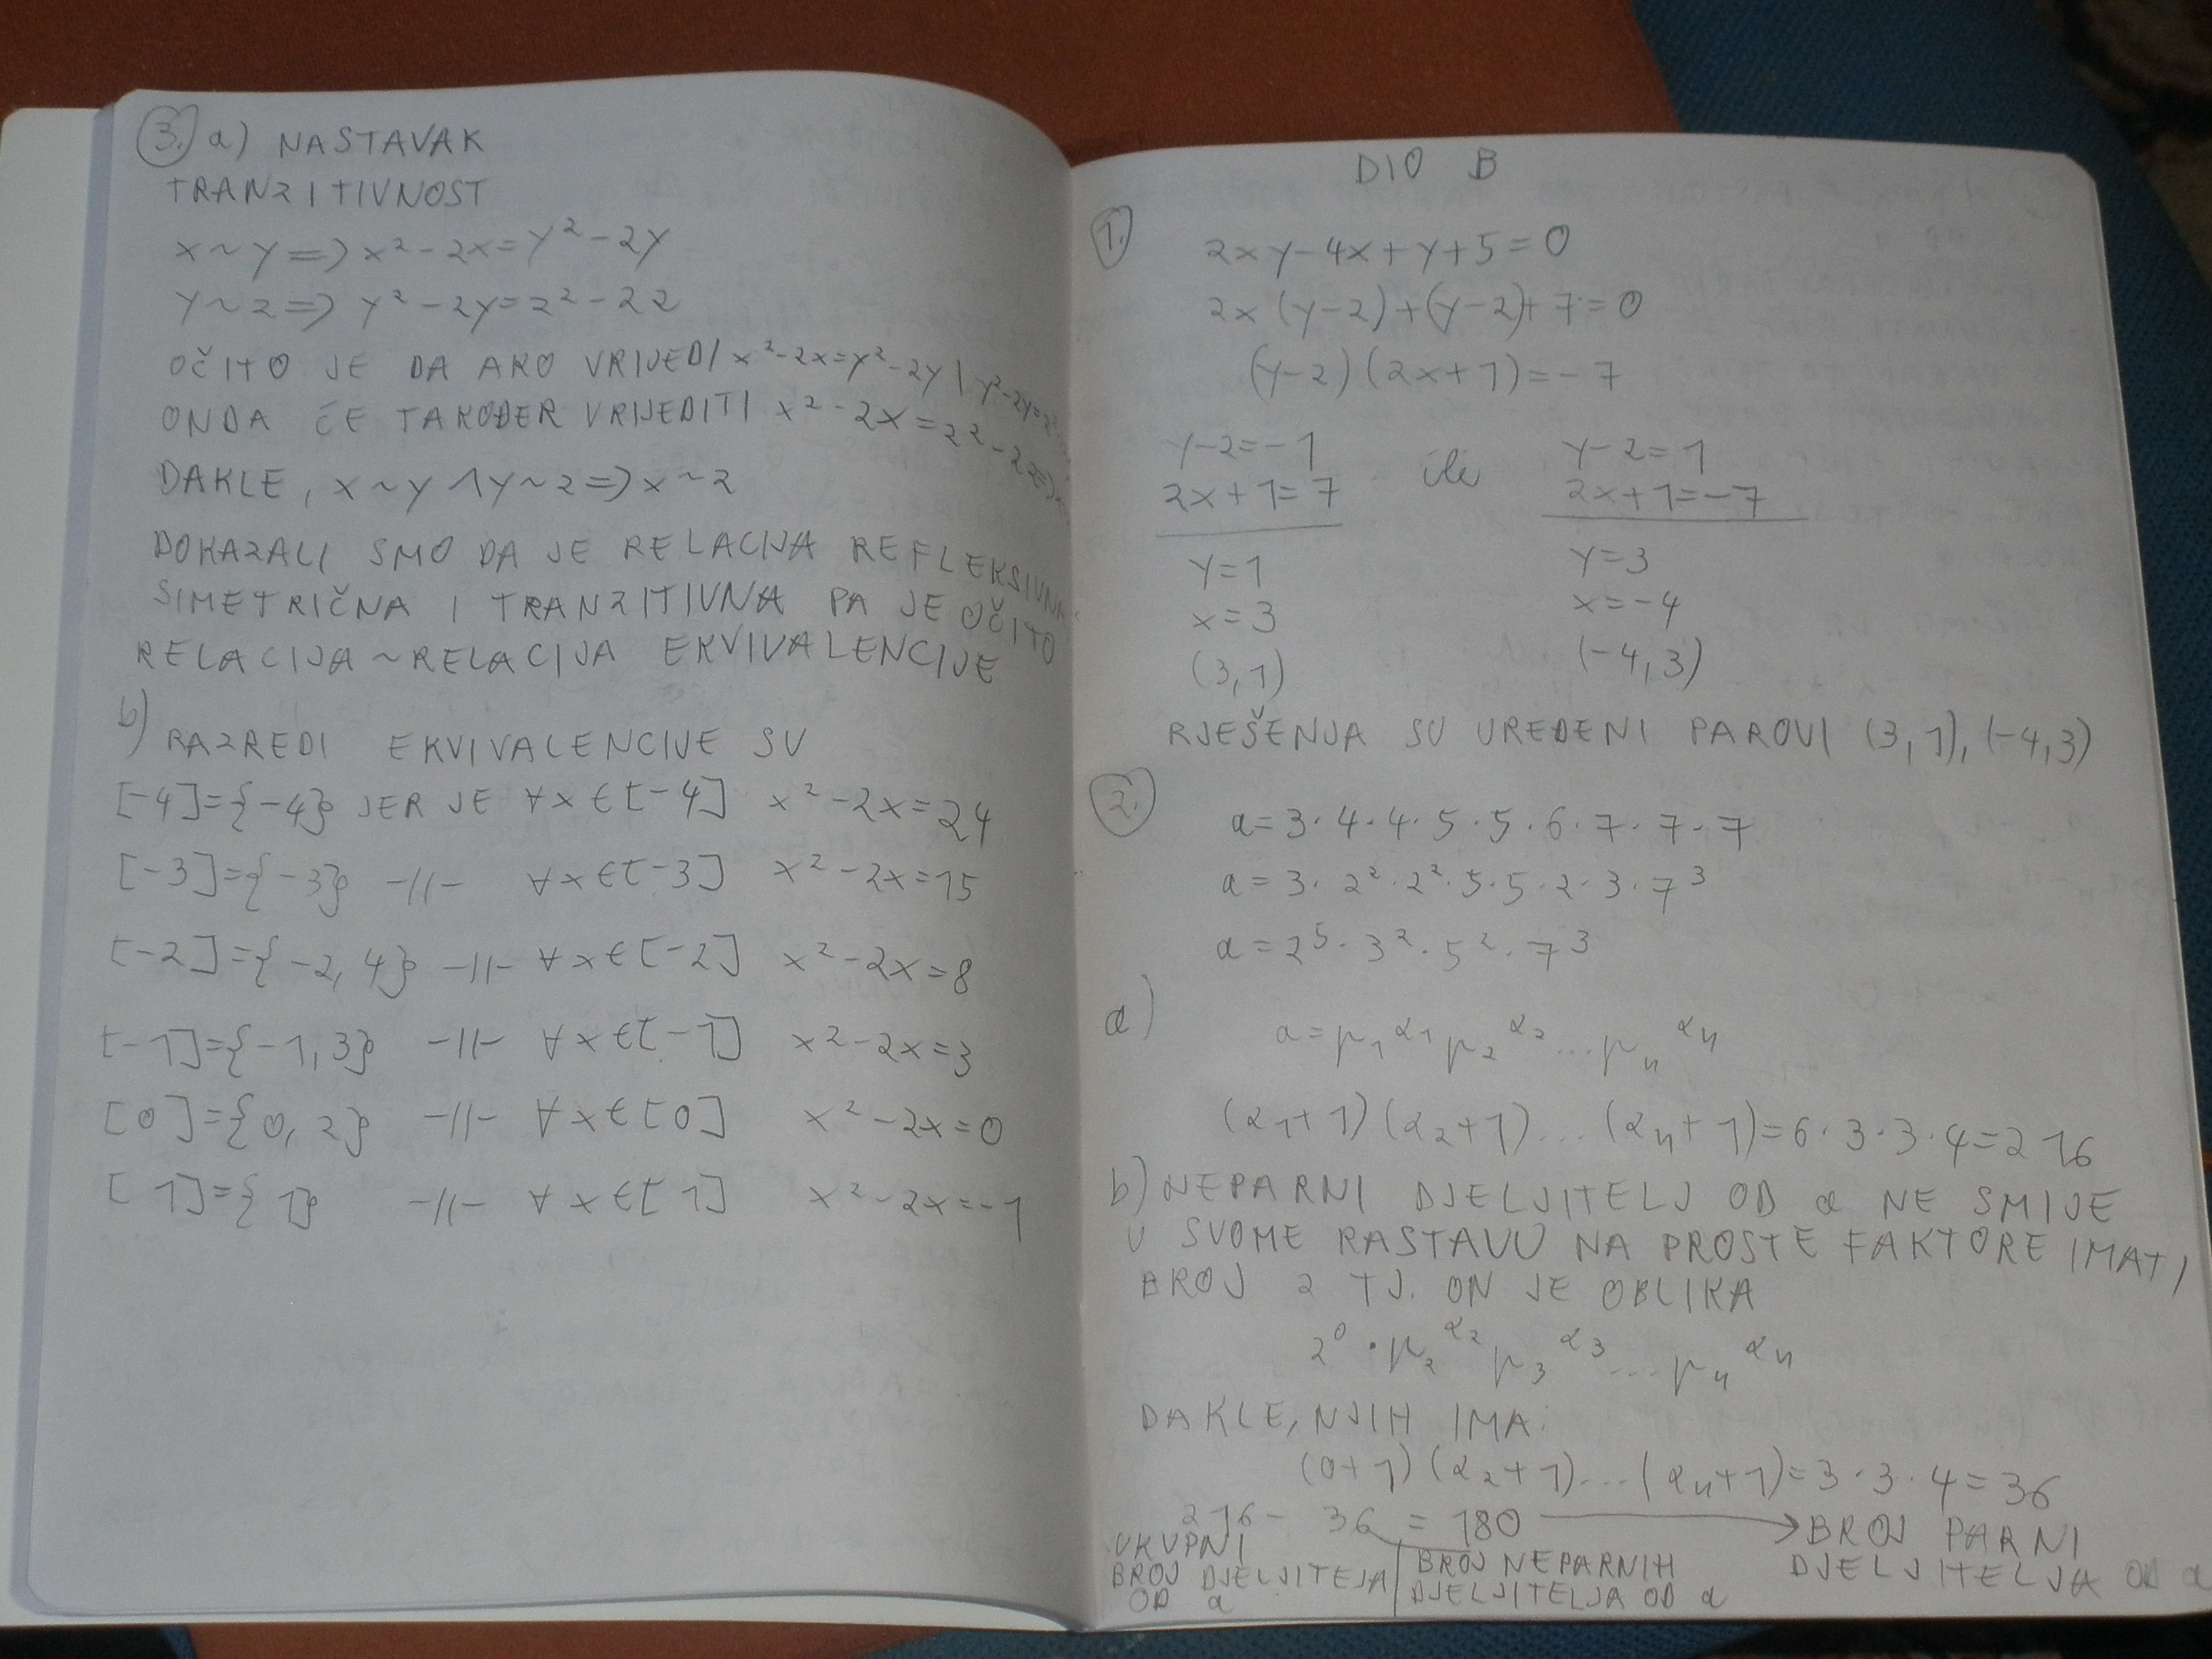 3. a) NASTAVAK
TRANZITIVNOST
x ~ y => x² - 2x = y² - 2y
y ~ z => y² - 2y = z² - 2z
OČITO JE DA AKO VRIJEDI x² - 2x = y² - 2y I y² - 2y = z²
ONDA ĆE TAKOĐER VRIJEDITI x² - 2x = z² - 2z =>
DAKLE, x ~ y ∧ y ~ z => x ~ z
DOKAZALI SMO DA JE RELACIJA REFLEKSIVNA
SIMETRIČNA I TRANZITIVNA PA JE OČITO
RELACIJA ~ RELACIJA EKVIVALENCIJE
b) RAZREDI EKVIVALENCIJE SU
[-4] = {-4} JER JE ∀x ∈ [-4] x² - 2x = 24
[-3] = {-3} -||- ∀x ∈ [-3] x² - 2x = 15
[-2] = {-2, 4} -||- ∀x ∈ [-2] x² - 2x = 8
[-1] = {-1, 3} -||- ∀x ∈ [-1] x² - 2x = 3
[0] = {0, 2} -||- ∀x ∈ [0] x² - 2x = 0
[1] = {1} -||- ∀x ∈ [1] x² - 2x = -1
DIO B
1. 2xy - 4x + y + 5 = 0
2x (y-2) + (y-2) + 7 = 0
(y-2) (2x+1) = -7
y-2 = -1 ili y-2 = 1
2x+1 = 7 2x+1 = -7
y = 1 y = 3
x = 3 x = -4
(3, 1) (-4, 3)
RJEŠENJA SU UREĐENI PAROVI (3, 1), (-4, 3)
2. a = 3 · 4 · 4 · 5 · 5 · 6 · 7 · 7 · 7
a = 3 · 2² · 2² · 5 · 5 · 2 · 3 · 7³
a = 2⁵ · 3² · 5² · 7³
a) a = p₁^α₁ p₂^α₂ ... pₙ^αₙ
(α₁+1) (α₂+1) ... (αₙ+1) = 6 · 3 · 3 · 4 = 216
b) NEPARNI DJELJITELJ OD a NE SMIJE
U SVOME RASTAVU NA PROSTE FAKTORE IMATI
BROJ 2 TJ. ON JE OBLIKA
2⁰ · p₂^α₂ p₃^α₃ ... pₙ^αₙ
DAKLE, NJIH IMA:
(0+1) (α₂+1) ... (αₙ+1) = 3 · 3 · 4 = 36
216 - 36 = 180 → BROJ PARNI
UKUPNI BROJ NEPARNIH DJELJITELJA OD a
BROJ DJELJITEJA DJELJITELJA OD a
OD a